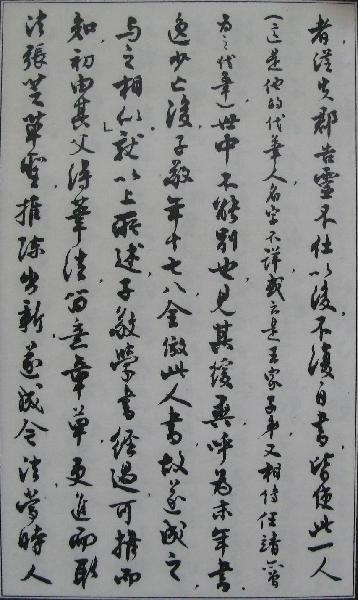 者從失郡告靈不仕以後不復自書皆使此一人
(這是他的代筆人名字不詳或云是王家子弟又相傳任靖曾
為之代筆)世中不能別也見其緩異呼為末年書
逸少亡後子敬年十七八全倣此人書故遂成之
与之相似」就以上所述子敬學書經過可推而
知初由其父得筆法留意章草更進而取
法張芝草聖推陳出新遂成今法當時人